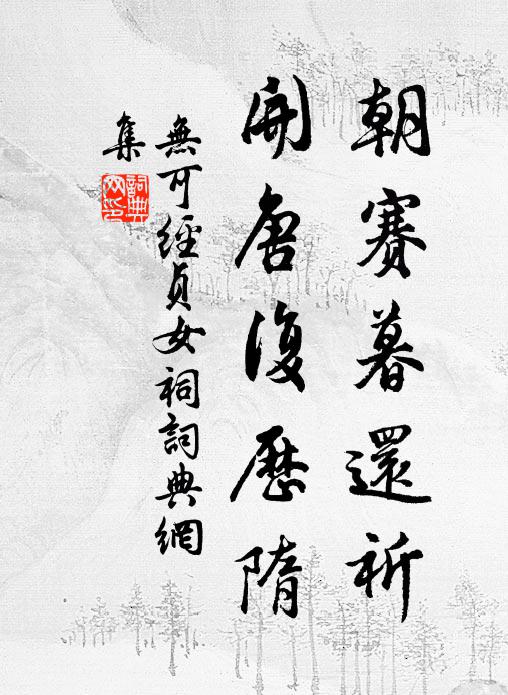 朝賽暮還祈
開唐復歷隋
無可經貞女祠詞典網
集
詞典
网印